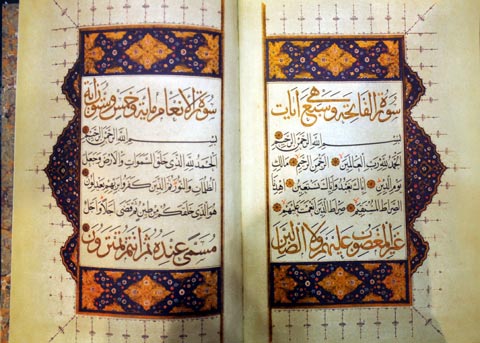 سورة الفاتحة وهى سبع آيات
بسم الله الرحمن الرحيم
الحمد لله رب العالمين الرحمن الرحيم مالك
يوم الدين اياك نعبد واياك نستعين اهدنا
الصراط المستقيم صراط الذين انعمت عليهم
غير المغضوب عليهم ولا الضالين
سورة الانعام مائة وخمس وستون آية
بسم الله الرحمن الرحيم
الحمد لله الذي خلق السموات والارض وجعل
الظلمات والنور ثم الذين كفروا بربهم يعدلون
هو الذي خلقكم من طين ثم قضى اجلا واجل
مسمى عنده ثم انتم تمترون